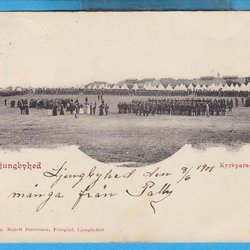 jungbyhed
Kyrkparad
Ljungbyhed den 9/6 1901
många från Pally
g. Rudolf Pettersson, Fotograf, Ljungbyhed